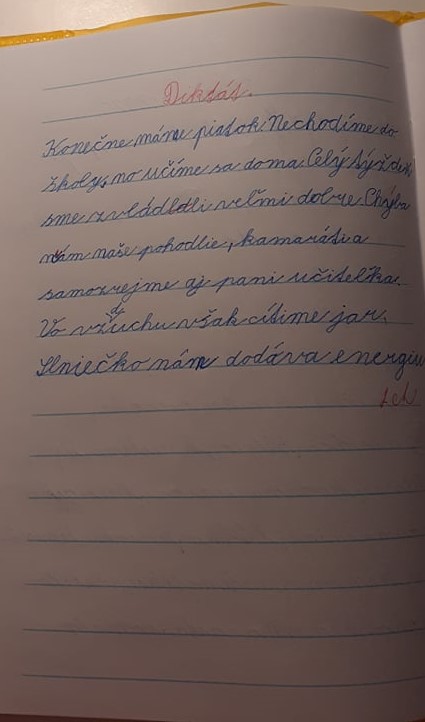 Diktát.
Konečne máme piatok. Nechodíme do
školy, no učíme sa doma. Celý týždeň
sme zvládli veľmi dobre. Chýba
nám naše pohodlie, kamaráti a
samozrejme aj pani učiteľka.
Vo vzduchu však cítime jar.
Slniečko nám dodáva energiu